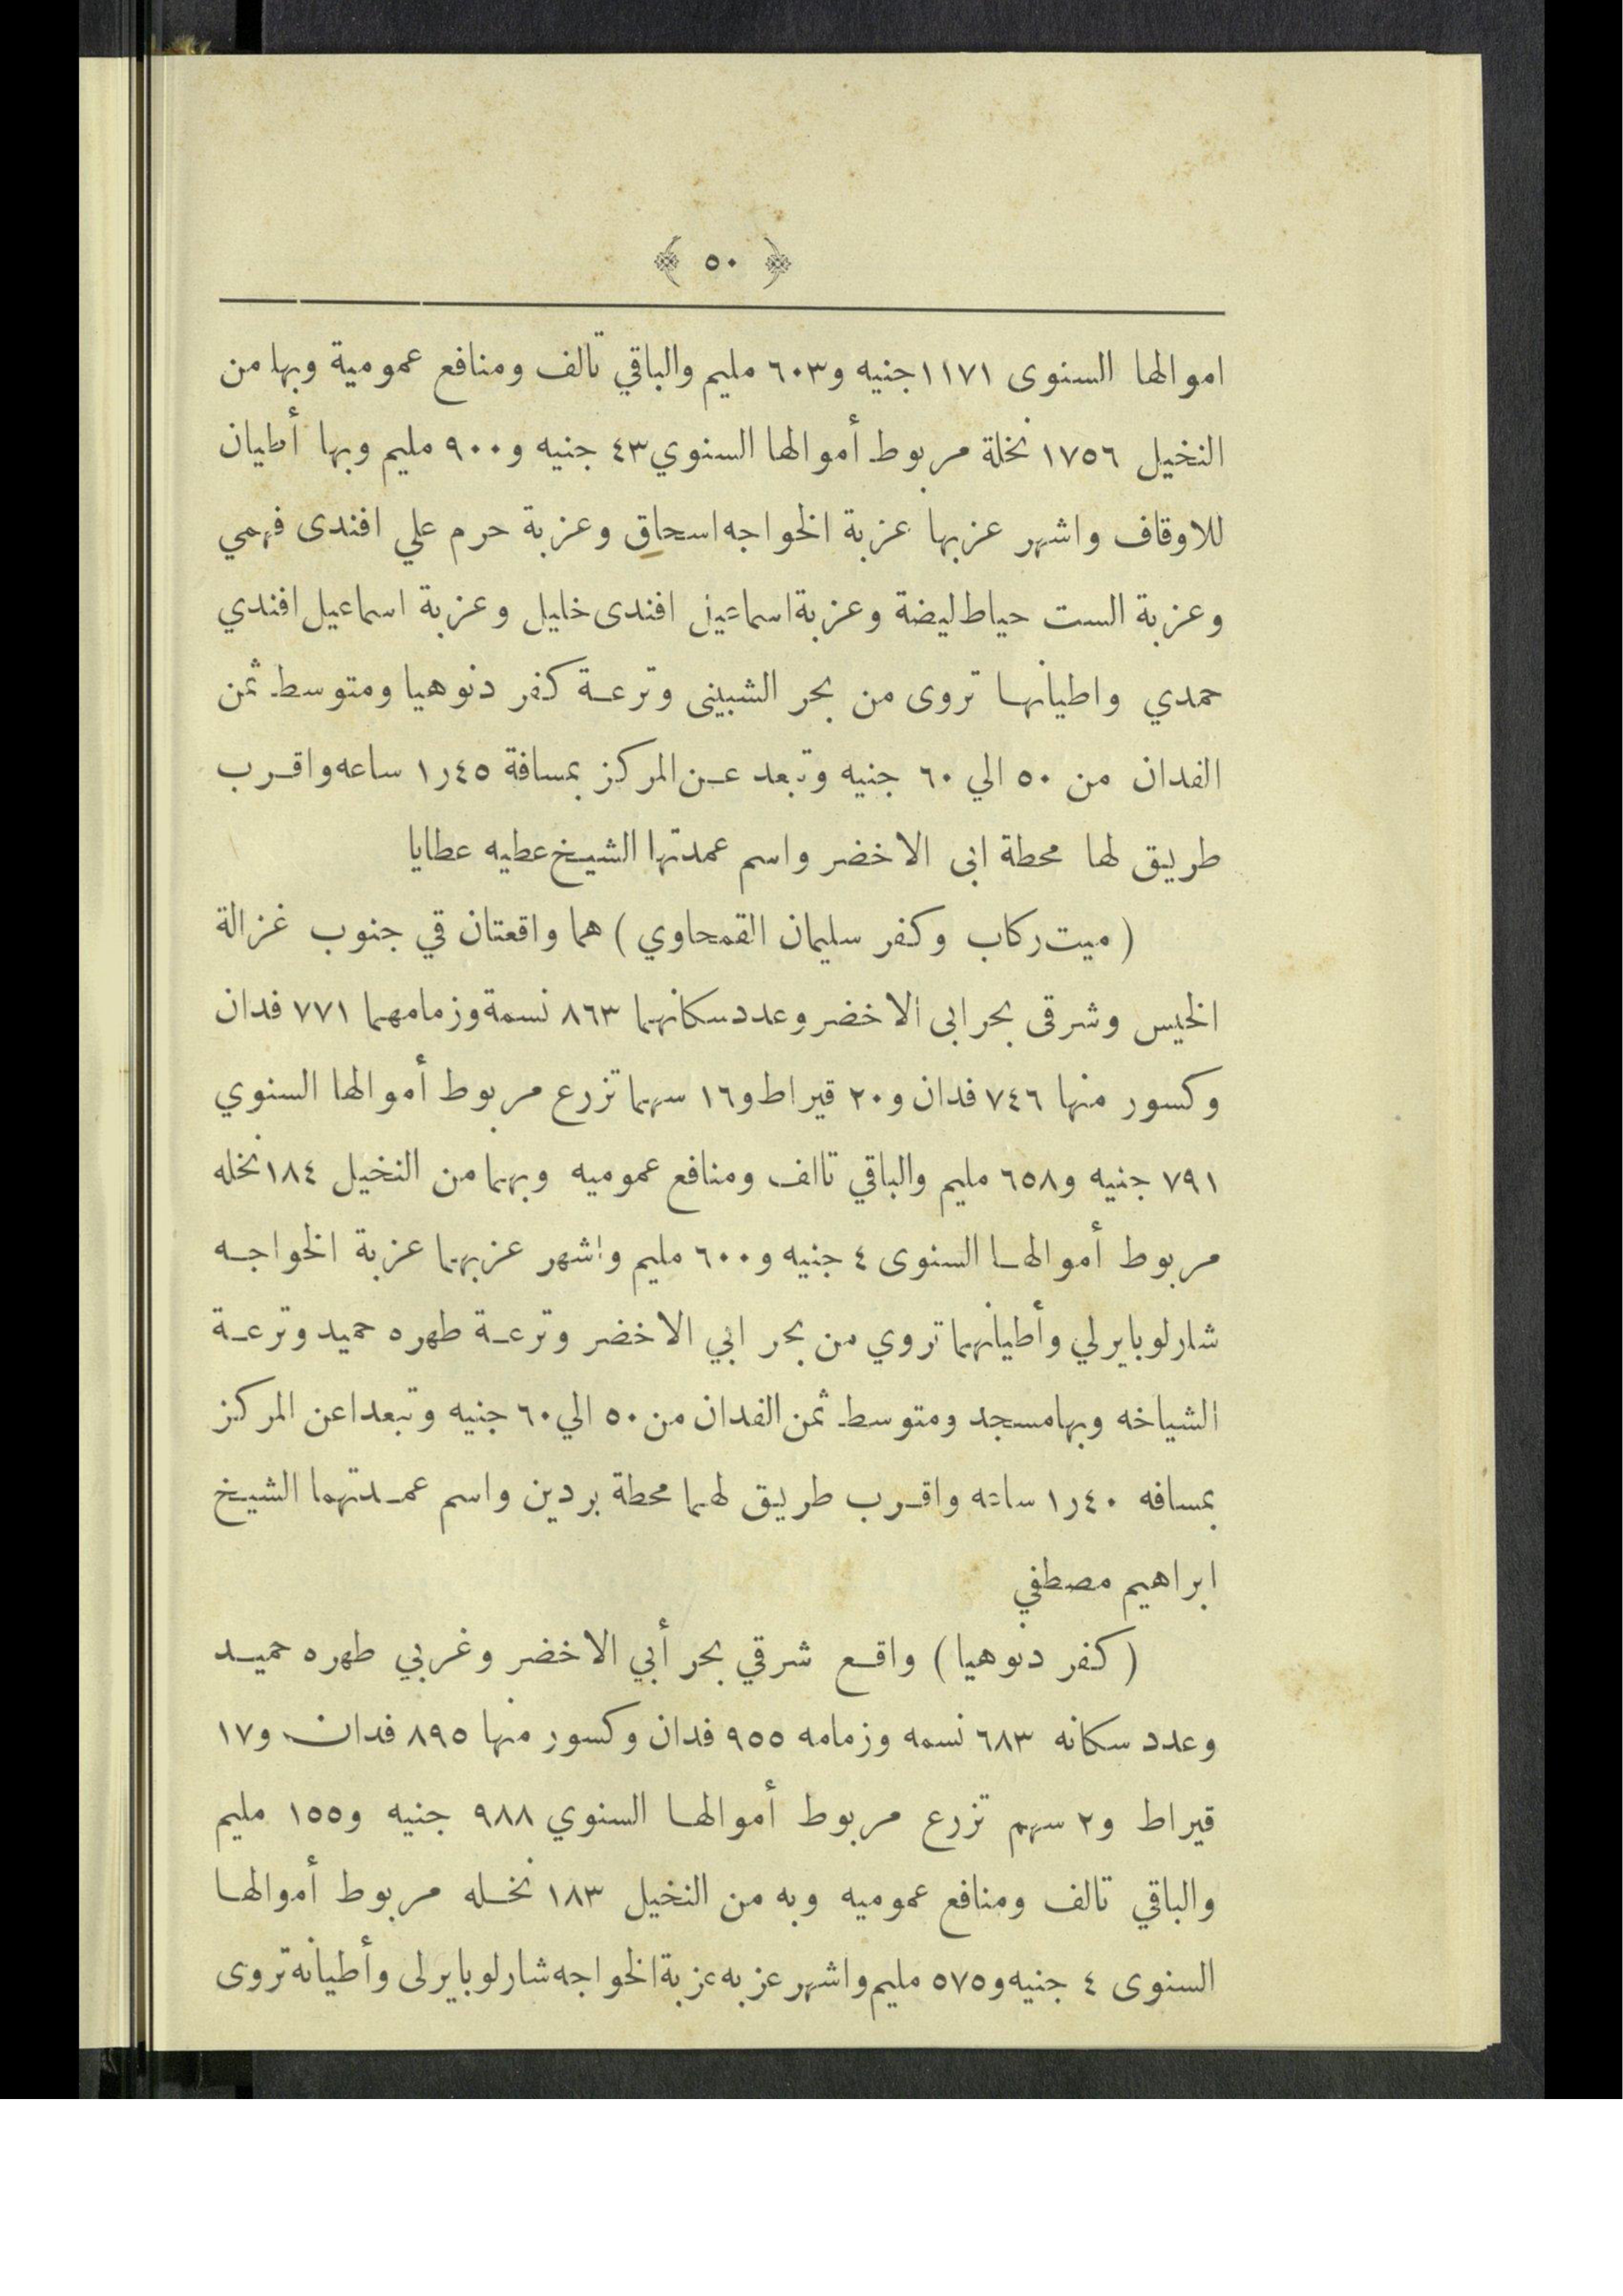 ﴿ ٥٠ ﴾
اموالها السنوى ١١٧١ جنيه و٦٠٣ مليم والباقي تالف ومنافع عمومية وبها من
النخيل ١٧٥٦ نخلة مربوط أموالها السنوي ٤٣ جنيه و٩٠٠ مليم وبها أطيان
للاوقاف واشهر عزبها عزبة الخواجه اسحاق وعزبة حرم علي افندى فهمي
وعزبة الست حياط ليضة وعزبة اسماعيل افندى خليل وعزبة اسماعيل افندي
حمدي واطيانها تروى من بحر الشبينى وترعة كفر دنوهيا ومتوسط ثمن
الفدان من ٥٠ الي ٦٠ جنيه وتبعد عن المركز بمسافة ٤٥ر١ ساعه واقرب
طريق لها محطة ابى الاخضر واسم عمدتها الشيخ عطيه عطايا
(ميت ركاب وكفر سليمان القمحاوي) هما واقعتان قي جنوب غزالة
الخيس وشرقى بحر ابى الاخضر وعدد سكانهما ٨٦٣ نسمة وزمامهما ٧٧١ فدان
وكسور منها ٧٤٦ فدان و٢٠ قيراط و١٦ سهما تزرع مربوط أموالها السنوي
٧٩١ جنيه و٦٥٨ مليم والباقي تالف ومنافع عموميه وبهما من النخيل ١٨٤ نخله
مربوط أموالها السنوى ٤ جنيه و٦٠٠ مليم واشهر عزبهما عزبة الخواجه
شارلو بايرلي وأطيانهما تروي من بحر ابي الاخضر وترعة طهره حميد وترعة
الشياخه وبها مسجد ومتوسط ثمن الفدان من ٥٠ الي ٦٠ جنيه وتبعدا عن المركز
بمسافه ٤٠ر١ ساعه واقرب طريق لهما محطة بردين واسم عمدتهما الشيخ
ابراهيم مصطفي
(كفر دنوهيا) واقع شرقي بحر أبي الاخضر وغربي طهره حميد
وعدد سكانه ٦٨٣ نسمه وزمامه ٩٥٥ فدان وكسور منها ٨٩٥ فدان و١٧
قيراط و٢ سهم تزرع مربوط أموالها السنوي ٩٨٨ جنيه و١٥٥ مليم
والباقي تالف ومنافع عموميه وبه من النخيل ١٨٣ نخله مربوط أموالها
السنوى ٤ جنيه و٥٧٥ مليم واشهر عزبه عزبة الخواجه شارلو بايرلى وأطيانه تروى